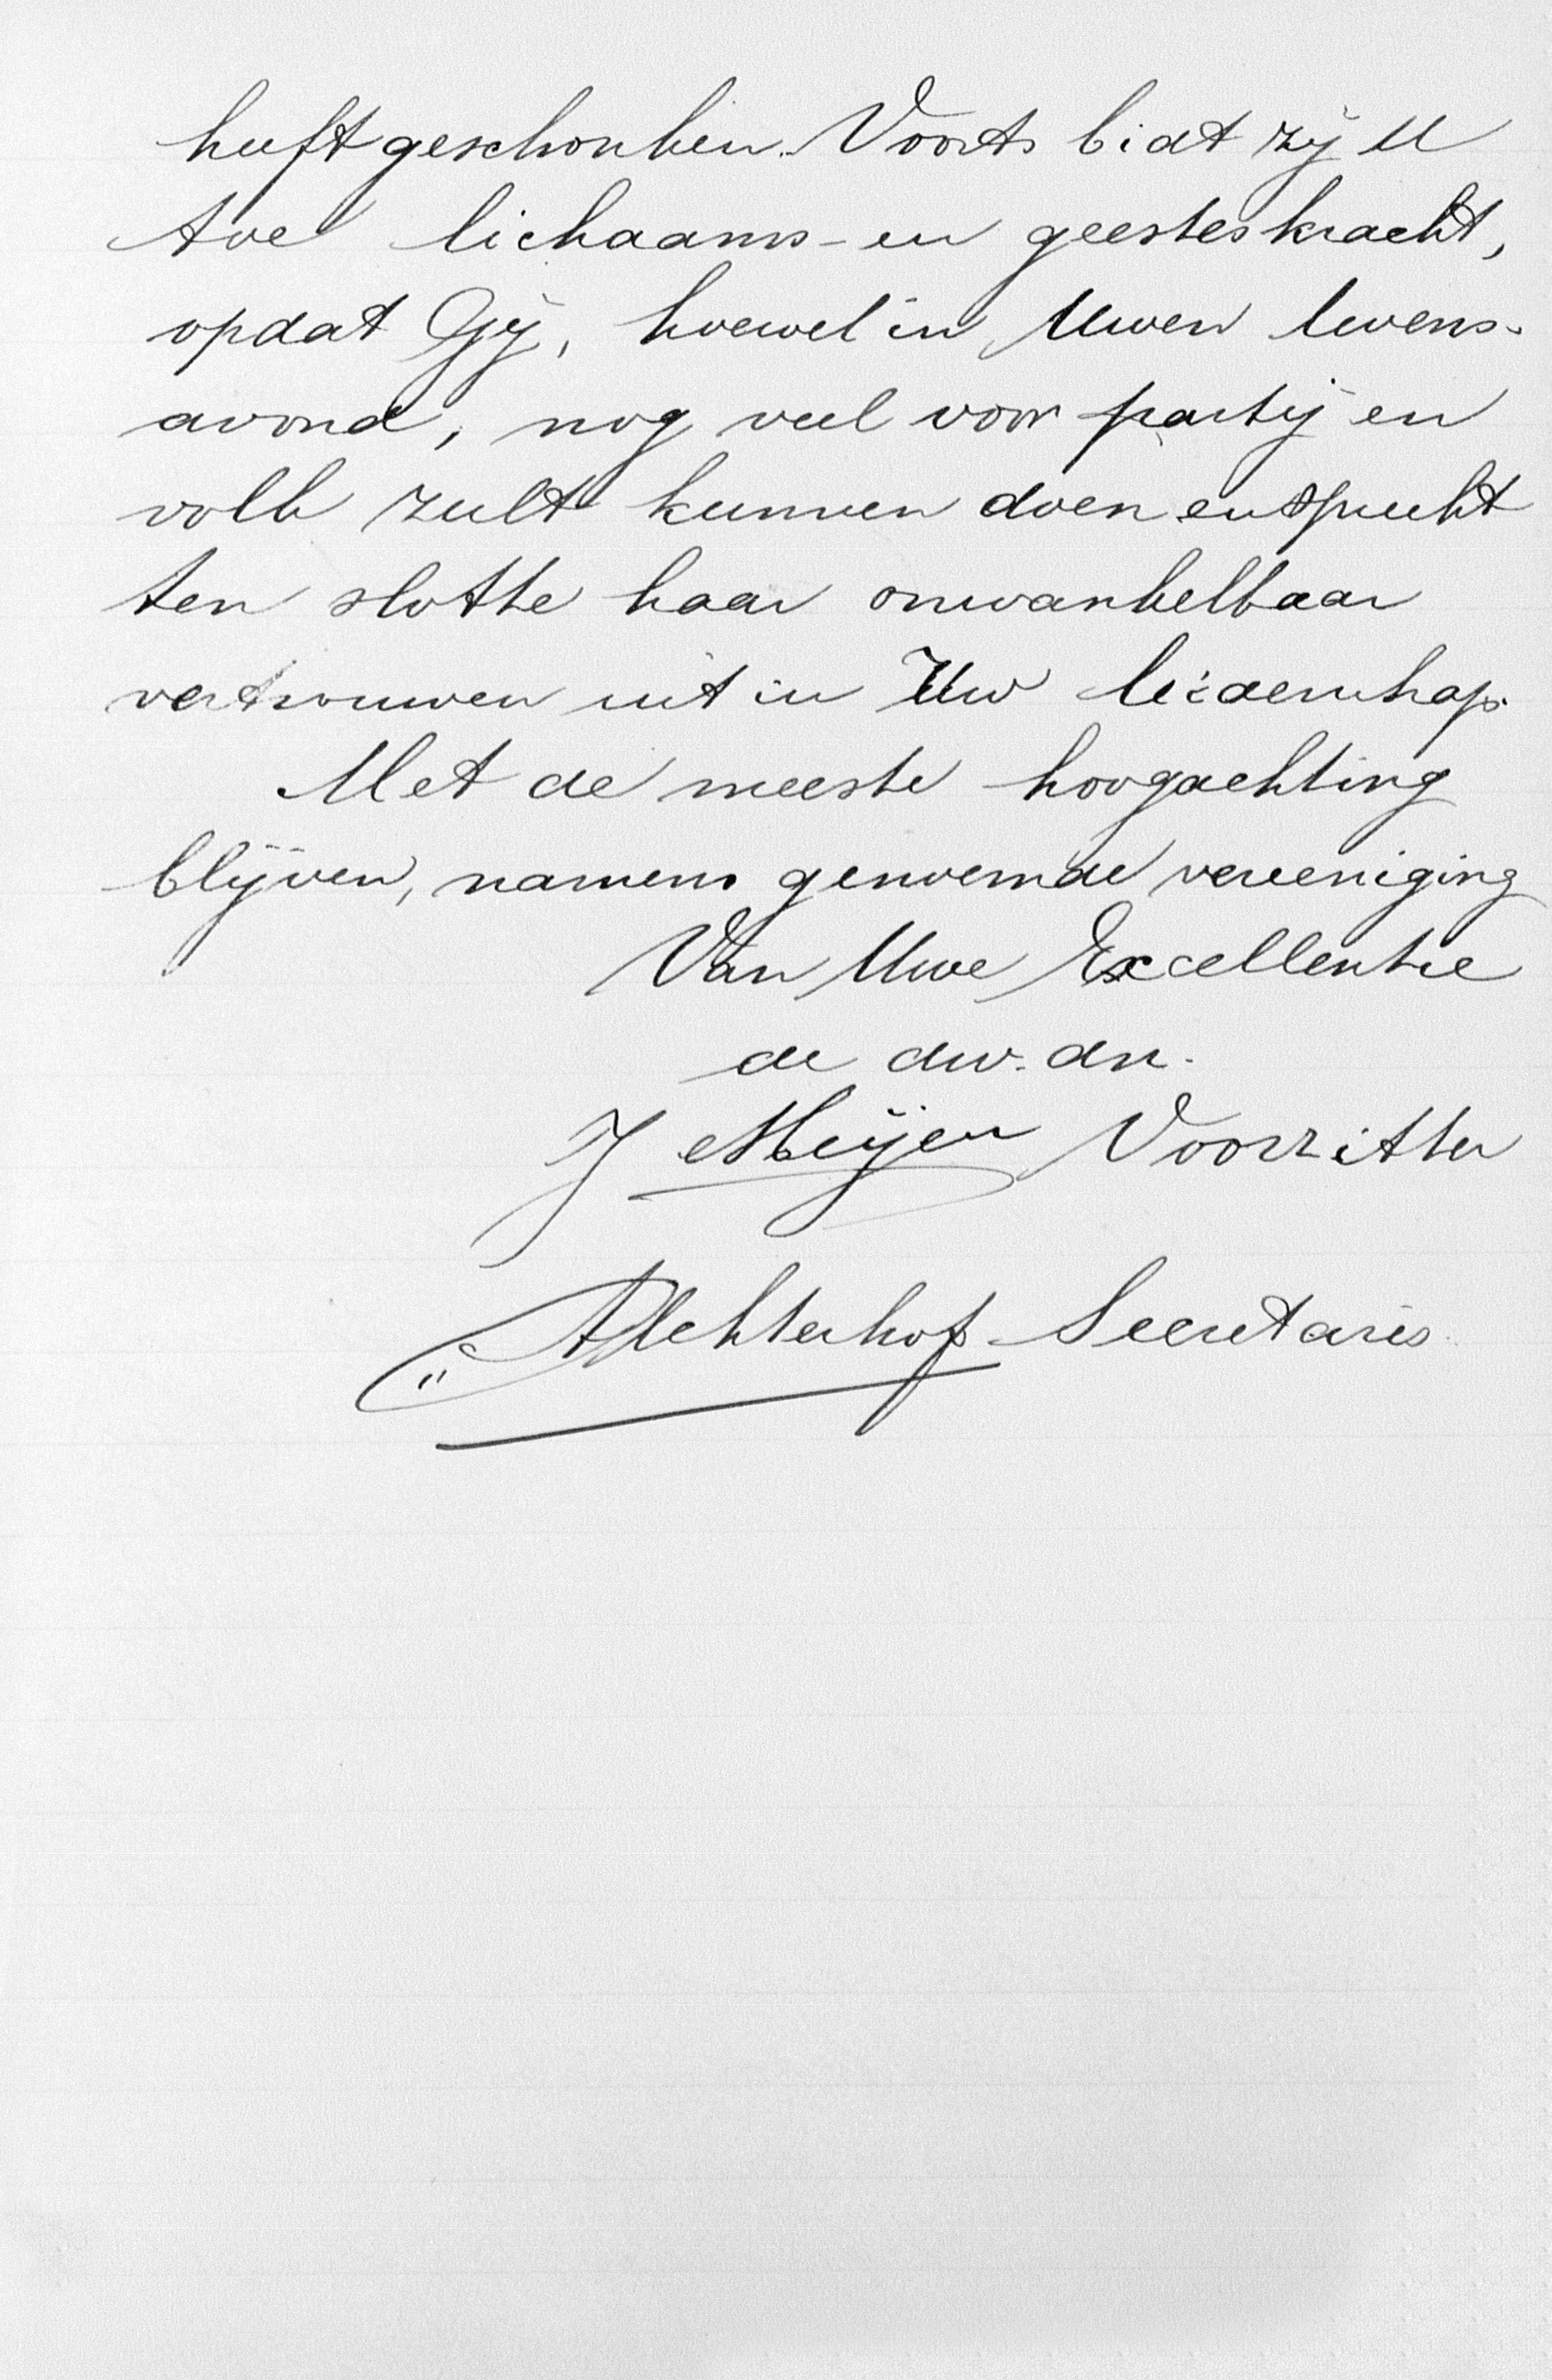 heeft geschonken. Voorts bidt zij U
toe lichaams- en geesteskracht,
opdat Gij, hoewel in Uwen levens-
avond, nog veel voor partij en
volk zult kunnen doen en spreekt
ten slotte haar onwankelbaar
vertrouwen uit in Uw leiderschap.
Met de meeste hoogachting
blijven, namens genoemde vereeniging
Van Uwe Excellentie
de dw. dn.
J Meijer Voorzitter
Achterhof Secretaris.